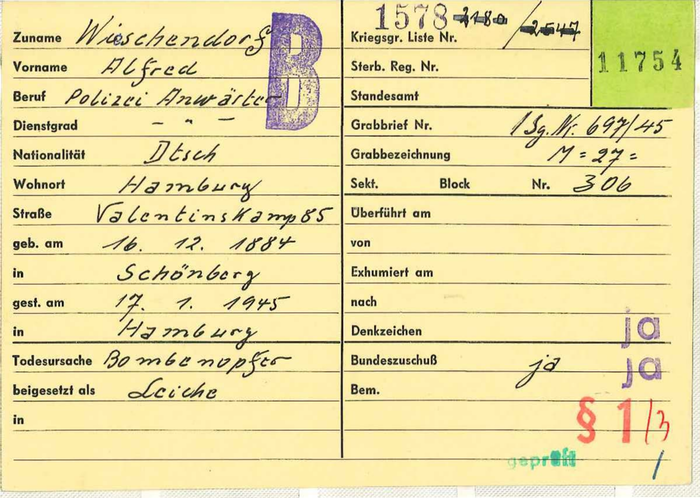 Zuname Wieschendorf
Vorname Alfred
Beruf Polizei Anwärter
Dienstgrad – " –
Nationalität Dtsch
Wohnort Hamburg
Straße Valentinskamp 85
geb. am 16. 12. 1884
in Schönberg
gest. am 17. 1. 1945
in Hamburg
Todesursache Bombenopfer
beigesetzt als Leiche
in
B
1578
Kriegsgr. Liste Nr. 2180 / 2547
11754
Sterb. Reg. Nr.
Standesamt
Grabbrief Nr. 1 Sg. Nr. 697/45
Grabbezeichnung M = 27 =
Sekt. Block Nr. 306
Überführt am
von
Exhumiert am
nach
Denkzeichen ja
Bundeszuschuß ja ja
Bem.
§ 1/3
geprüft